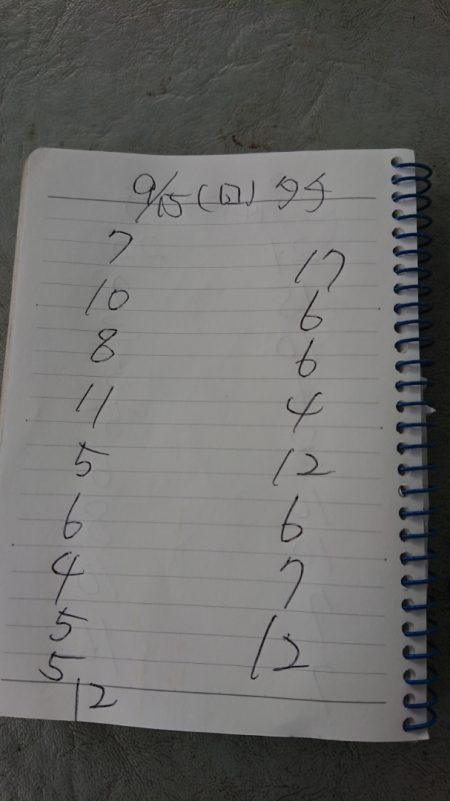 9/15(日) タチ
7
10
8
11
5
6
4
5
5
12
17
6
6
4
12
6
7
12